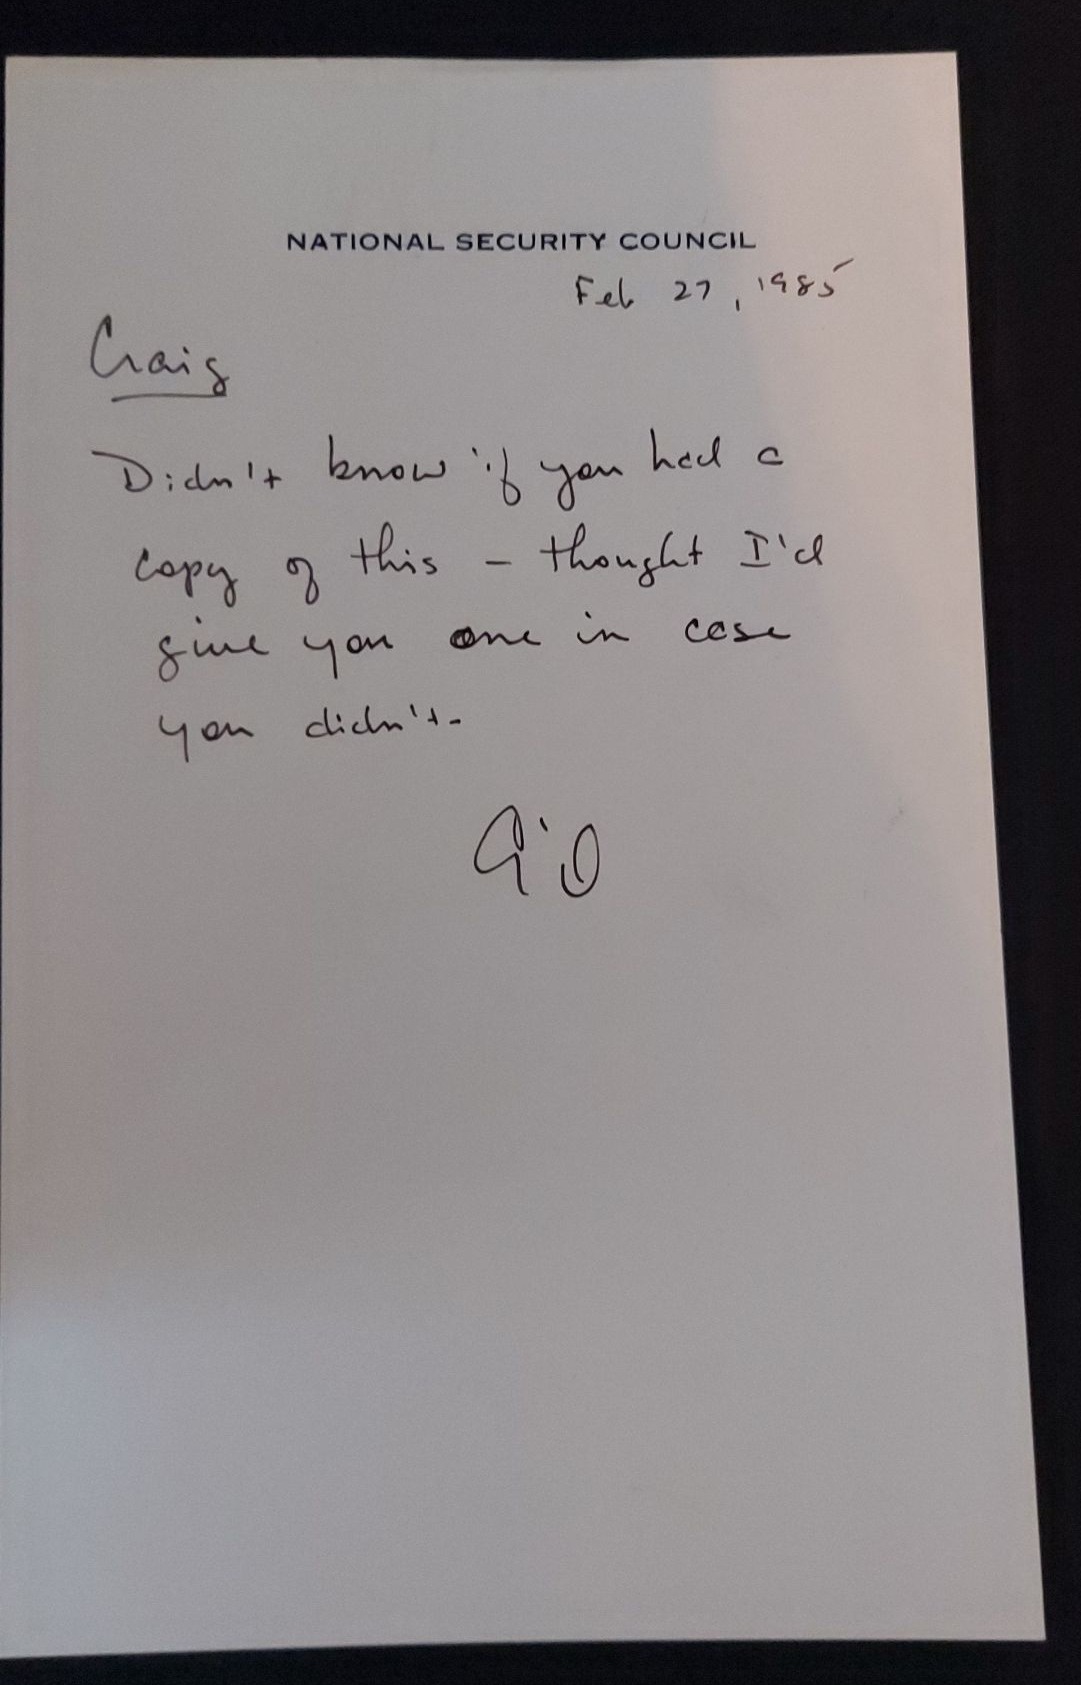 NATIONAL SECURITY COUNCIL
Feb 27, 1985
Craig
Didn't know if you had a
copy of this – thought I'd
give you one in case
you didn't-